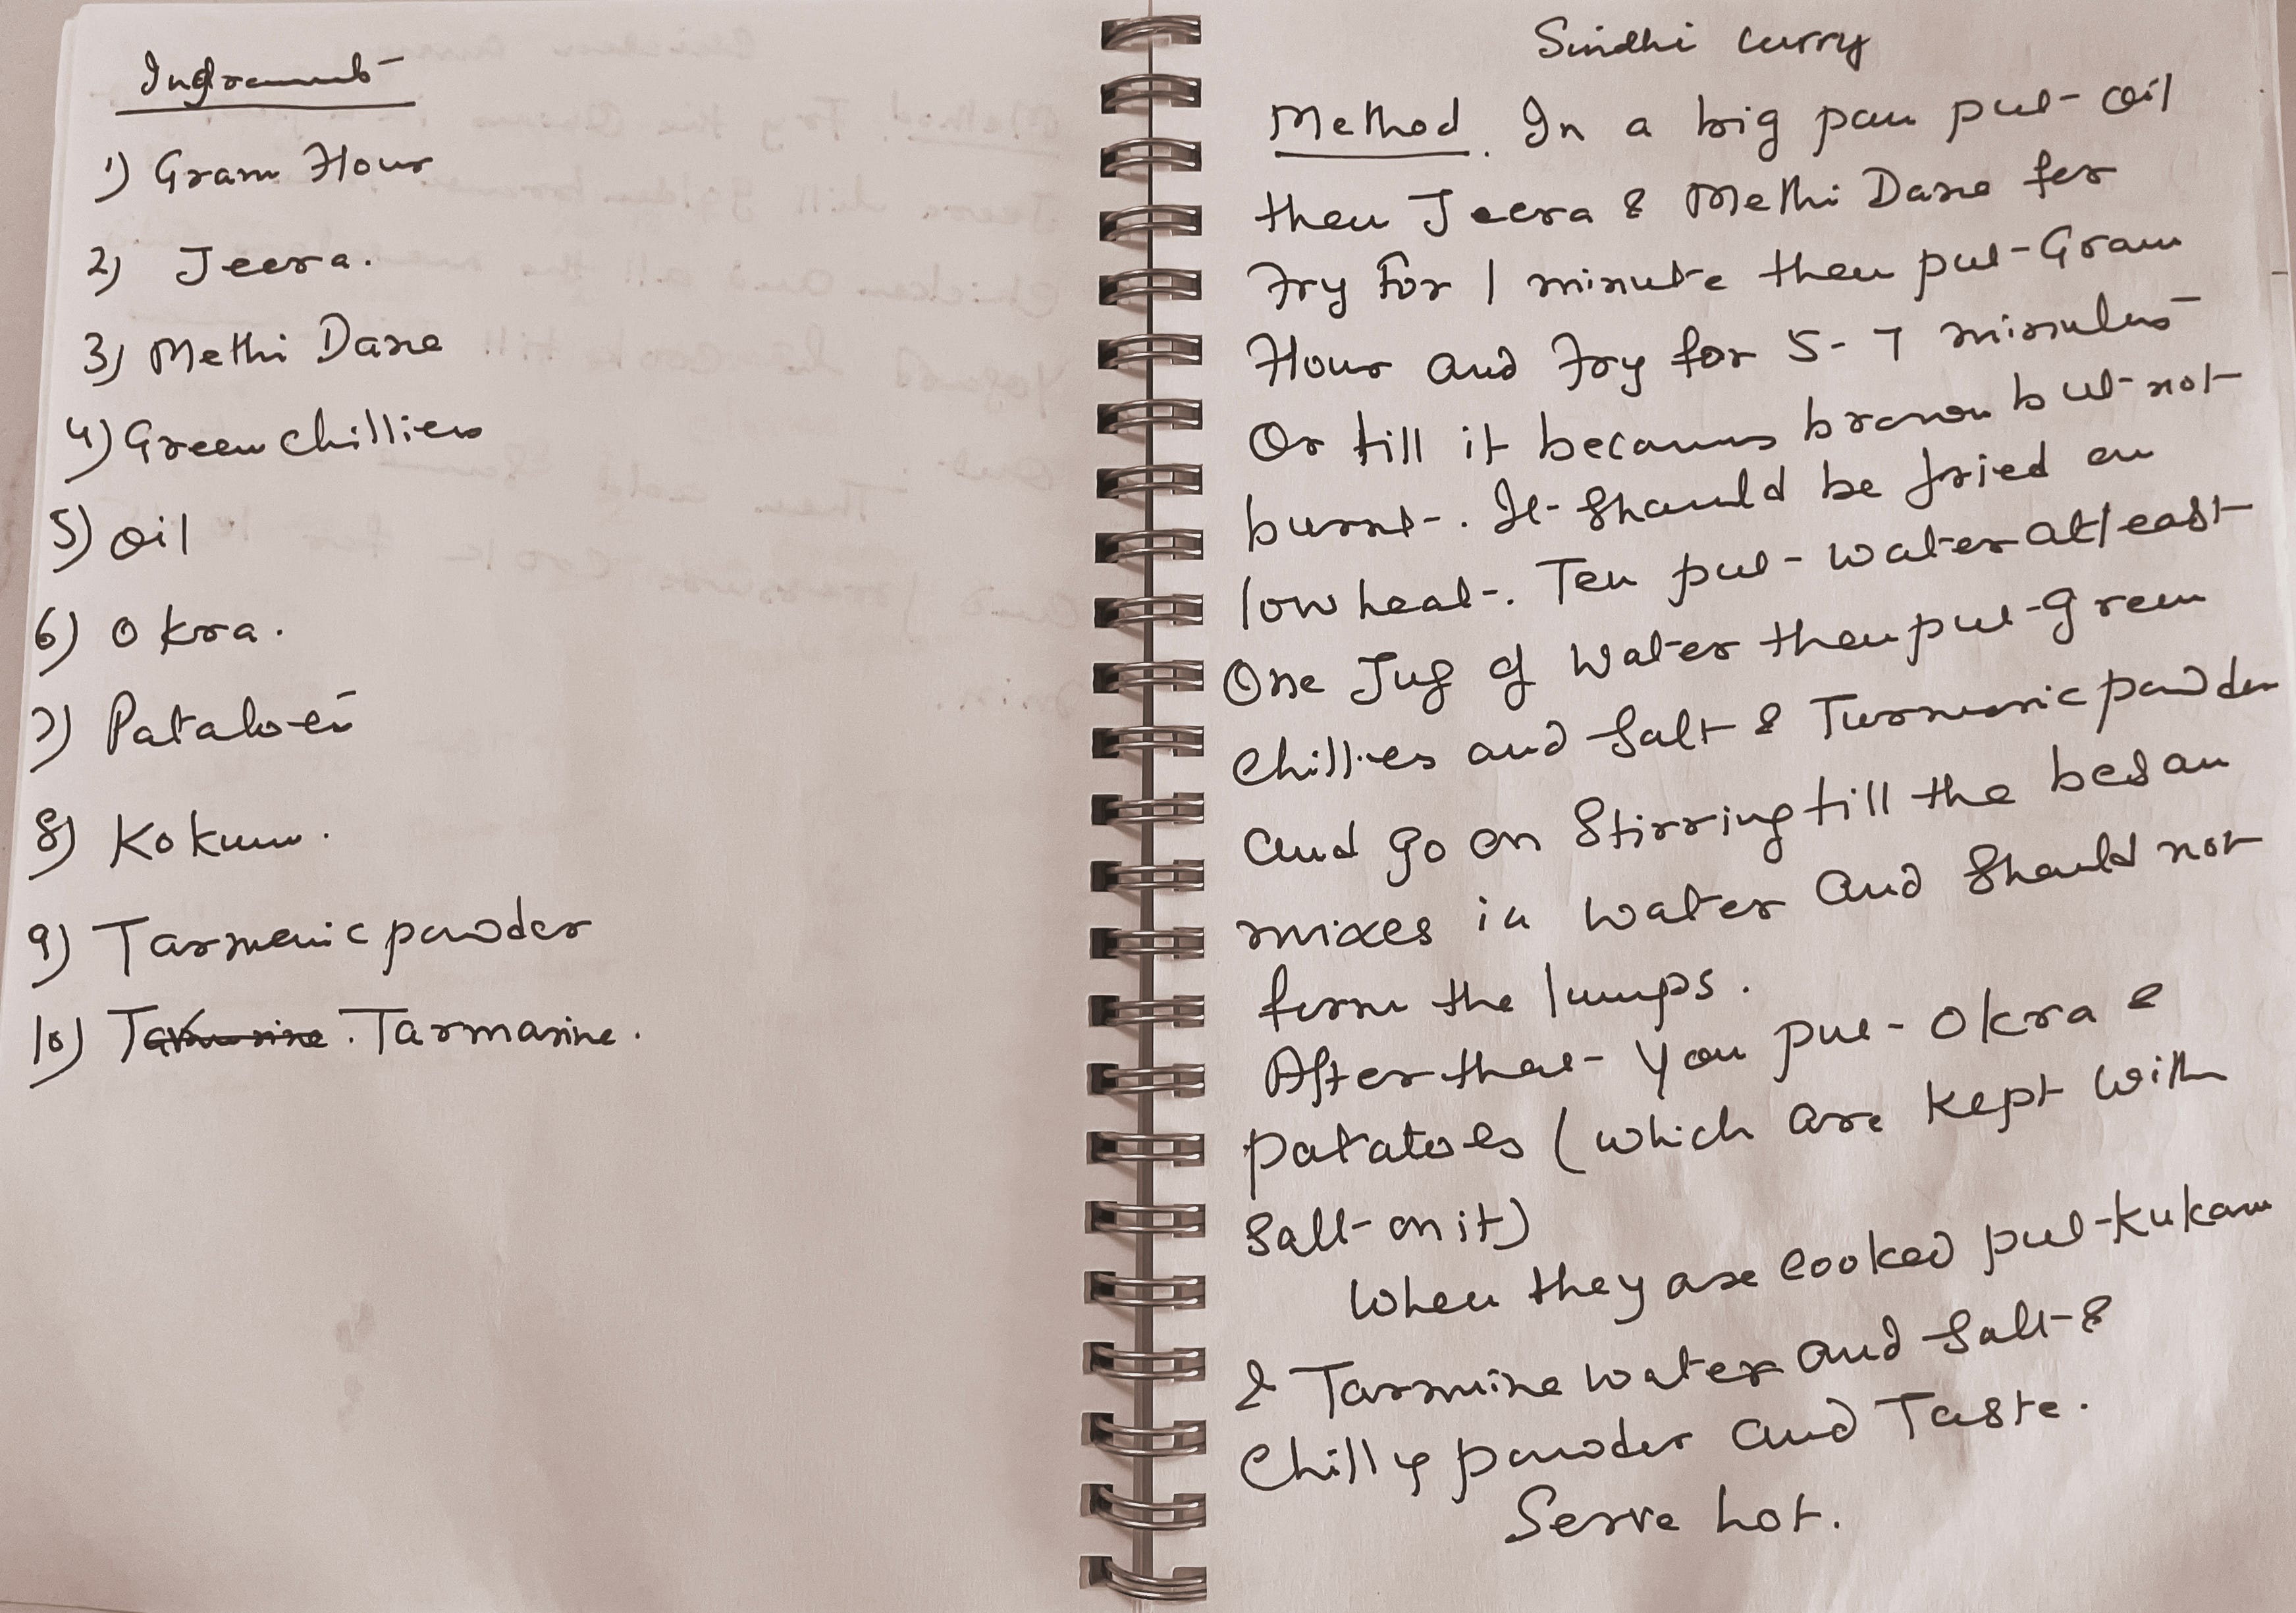 Ingraments
1) Gram Flour
2) Jeera.
3) Methi Dane
4) Green chillies
5) Oil
6) Okra.
7) Patatoes
8) Kokum.
9) Tarmeric powder
10) Tarmarine.
Sindhi curry
Method. In a big pan put oil
then Jeera & Methi Dane for
Fry For 1 minute then put Gram
Flour and Fry for 5-7 minutes
Or till it becomes brown but not
burnt. It should be fried on
low heat. Ten put water atleast
One Jug of Water then put green
Chillies and Salt & Turmeric powder
and go on Stirring till the besan
mixes in water and should not
form the lumps.
After that you put Okra &
patatoes (which are kept with
Salt on it)
When they are cooked put kukam
& Tarmrine water and Salt &
Chilly powder and Taste.
Serve hot.